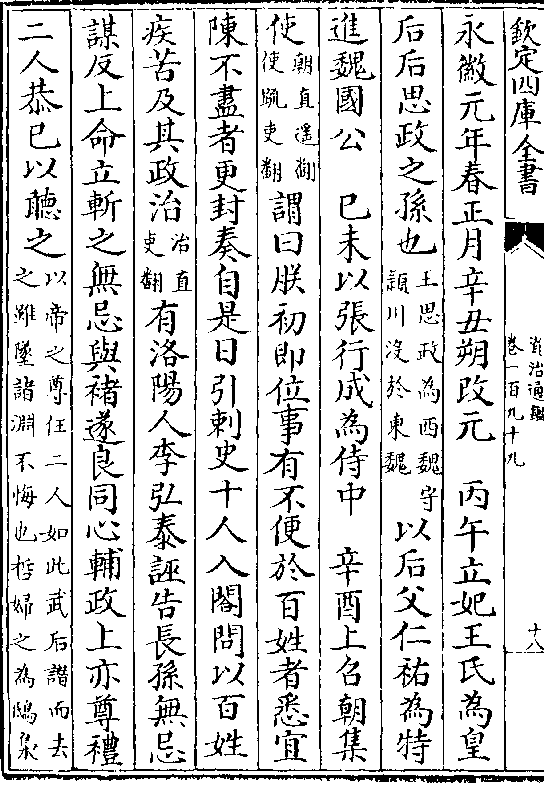 欽定四庫全書
資治通鑑
卷一百九十九
十八
永徽元年春正月辛丑朔改元　丙午立妃王氏為皇
后后思政之孫也王思政為西魏守潁川沒於東魏以后父仁祐為特
進魏國公　己未以張行成為侍中　辛酉上召朝集
使朝直遙翻使疏吏翻謂曰朕初即位事有不便於百姓者悉宜
陳不盡者更封奏自是日引刺史十人入閤問以百姓
疾苦及其政治治直吏翻有洛陽人李弘泰誣告長孫無忌
謀反上命立斬之無忌與褚遂良同心輔政上亦尊禮
二人恭已以聽之以帝之尊任二人如此武后譖而去之雖墜諸淵不悔也哲婦之為鴟梟